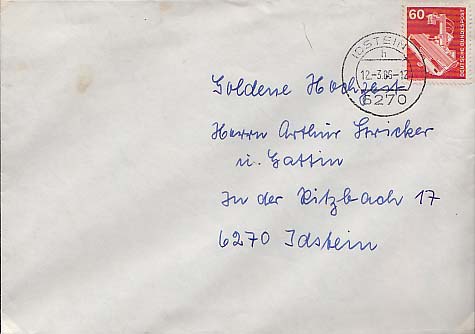 60
DEUTSCHE BUNDESPOST
IDSTEIN
h
12.-3.86-12
6270
Goldene Hochzeit
Herrn Arthur Stricker
u. Gattin
In der Ritzbach 17
6270 Idstein